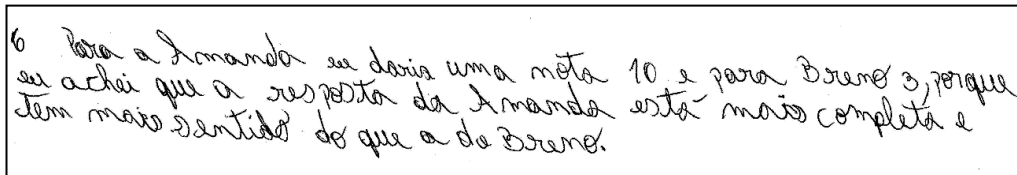 6 Para a Amanda eu daria uma nota 10 e para Breno 3, porque
eu achei que a resposta da Amanda está mais completa e
tem mais sentido do que a do Breno.